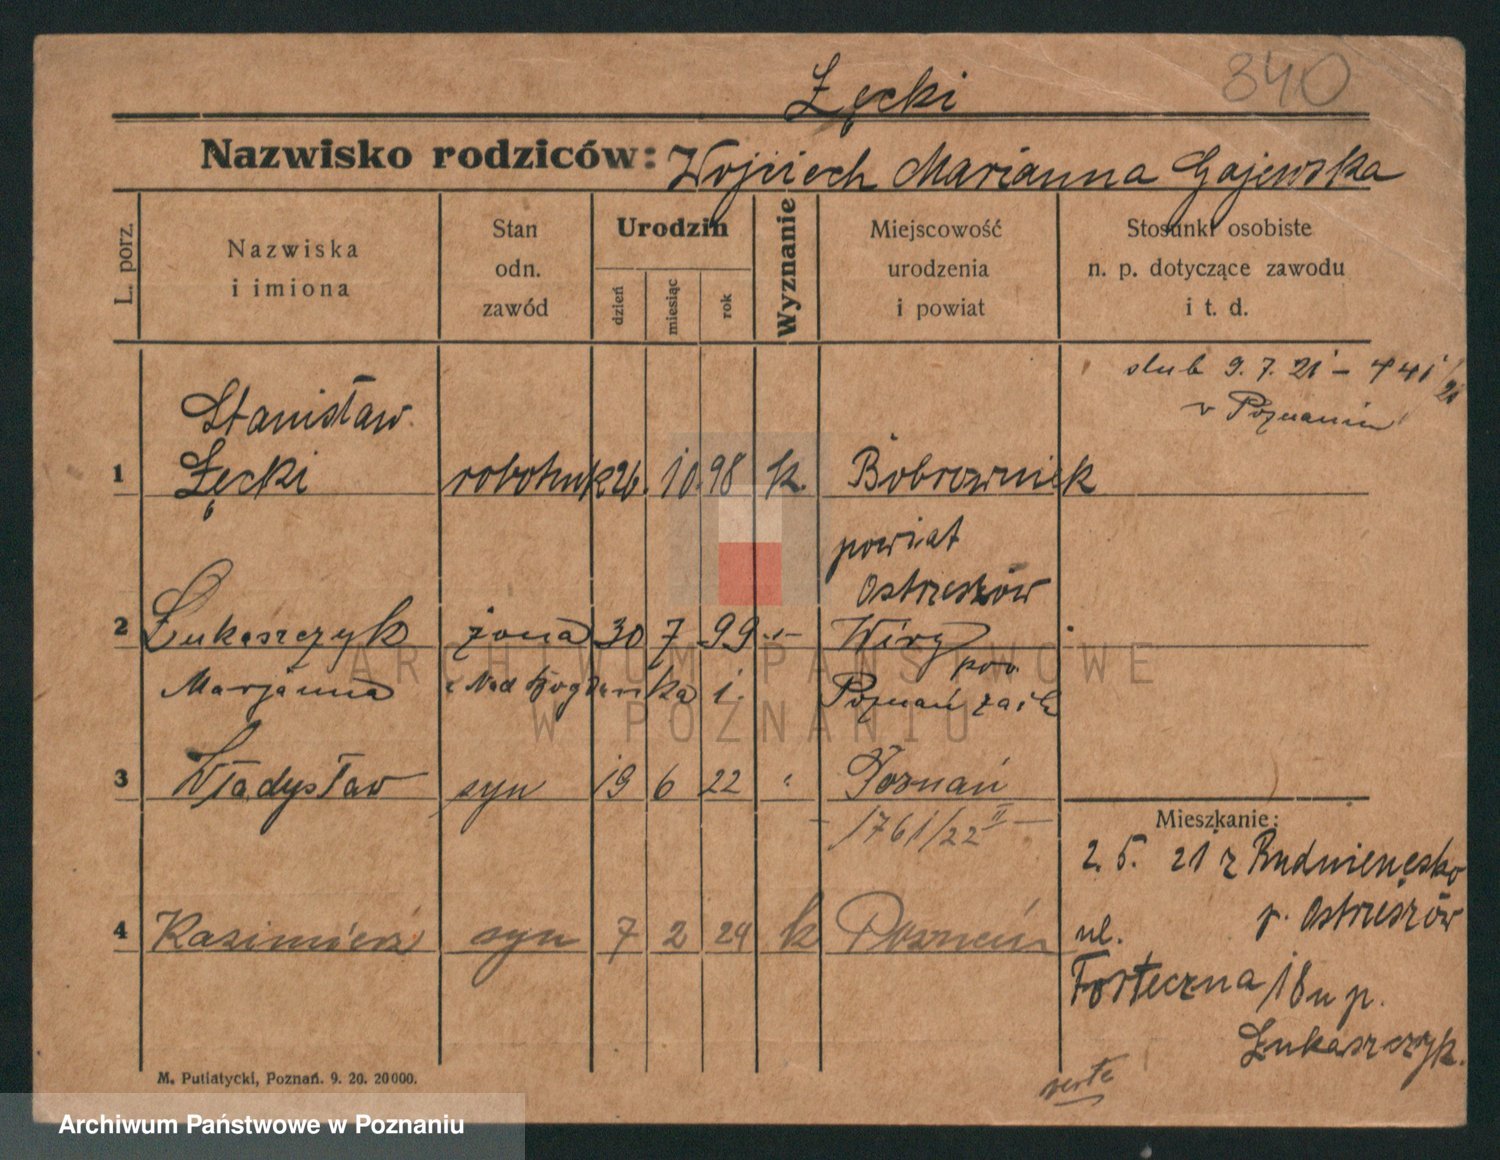 840
Łęcki
Nazwisko rodziców: Wojciech Marianna Gajewska
L. porz.
Nazwiska
i imiona
Stan
odn.
zawód
Urodzin
dzień
miesiąc
rok
Wyznanie
Miejscowość
urodzenia
i powiat
Stosunki osobiste
n. p. dotyczące zawodu
i t. d.
ślub 9. 7. 21 - 741/21
w Poznaniu
Stanisław
1 Łęcki robotnik 26. 10. 98 k. Bobrownik
powiat
Ostrzeszów
2 Łukaszczyk żona 30 7 99 -"- Wiry
pow.
Marjanna Nad Bogdanką 1. Poznań zach
3 Władysław syn 19 6 22 " Poznań
1761/22 II
Mieszkanie:
2. 5. 21 z
p. Ostrzeszów
4 Kazimierz syn 7 2 24 k Poznań
ul.
Forteczna 18 u p.
Łukaszczyk.
verte
M. Putiatycki, Poznań. 9. 20. 20000.
ARCHIWUM PAŃSTWOWE
W POZNANIU
Archiwum Państwowe w Poznaniu